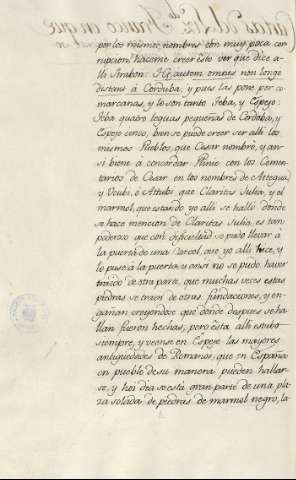 por los mismos nombres con muy poca cor-
rupcion: haceme creer esto ver que dice a-
lli Strabon: Hæ autem omnes non longe
distans á Corduba, y pues las pone por co-
marcanas, y lo son tanto Teba, y Espejo:
Teba quatro leguas pequeñas de Cordoba, y
Espejo cinco, bien se puede creer ser alli los
mismos Pueblos, que Cesar nombre, y an-
si biene á concordar Plinio con los Comen-
tarios de Cesar en los nombres de Attegua,
y Vcubi, ó Attubi que Claritas Julia, y el
marmol, que estando yo alli se halló donde
se hace mencion de Claritas Julia, es tan
poderoso que con dificultad se pudo llevar á
la puerta de una Carcel, que yo alli hice, y
lo puse á la puerta, y ansi no se pudo haver
traido de otra parte, que muchas veces estas
piedras se traen de otras fundaciones, y en-
gañan creyendose que donde despues se ha-
llan fueron hechas, pero ésta alli estubo
siempre, y veense en Espejo las mayores
antiguedades de Romanos, que en España
en pueblo de su manera pueden hallar-
se, y hoi dia se está gran parte de una pla-
za solada de piedras de marmol negro, la